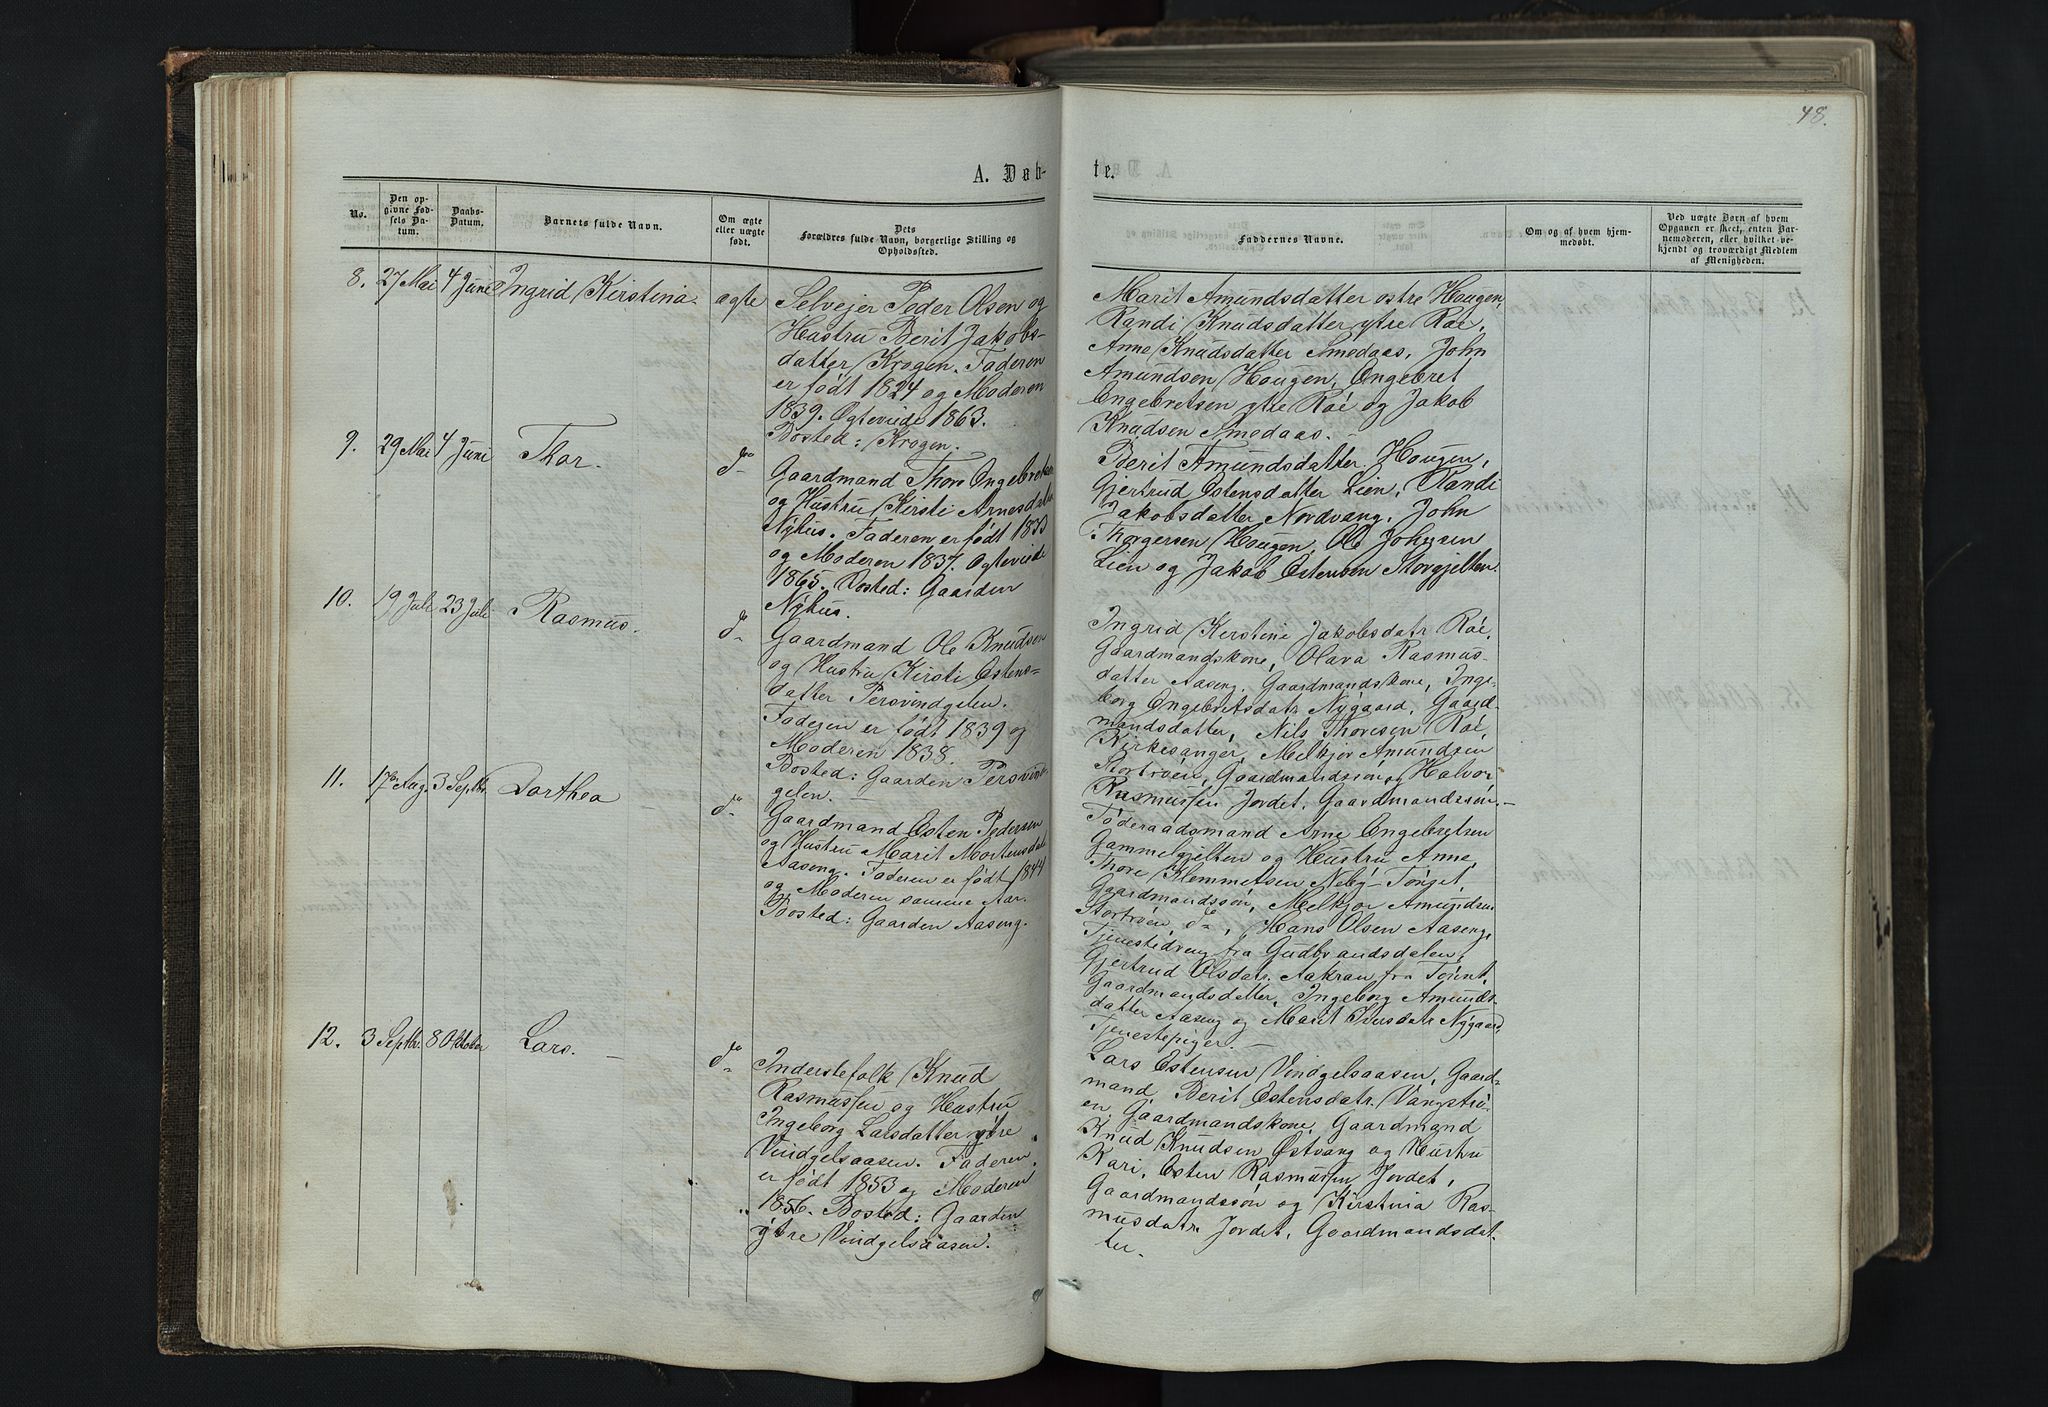 48.
A. Døb-
te.
No.
Den op-
givne Fød-
sels Da-
tum.
Daabs-
Datum.
Barnets fulde Navn.
Om ægte
eller uægte
født.
Dets
Forældres fulde Navn, borgerlige Stilling og
Opholdssted.
Faddernes Navne.
Om og af hvem hjem-
medøbt.
Ved uægte Børn af hvem
Opgaven er skeet, enten Bar-
nemoderen, eller hvilket ve-
kjendt og troværdigt Medlem
af Menigheden.
8. 27 Mai 4 Juni Ingrid Kirstina. ægte
Selveier Peder Olsen og
Hustru Berit Jakobs-
datter Krogen. Faderen
er født 1824 og Moderen
1839. Egteviede 1863.
Bosted: Krogen.
Marit Amundsdatter østre Hougen,
Randi Knudsdatter ytre Røe,
Anne Knudsdatter Smedaas, John
Amundsen Hougen, Engebret
Engebretsen ytre Røe og Jakob
Knudsen Smedaas. -
9. 29 Mai 4 Juni Thor. do
Gaardmand Thore Engebretsen
og Hustru Kirsti Arnesdatter
Nyhus. Faderen er født 1833
og Moderen 1837. Egteviede
1865. Bosted: Gaarden
Nyhus.
Berit Amundsdatter Hougen,
Gjertrud Estensdatter Lien, Randi
Jakobsdatter Nordvang, John
Thorgersen Hougen, Ole Johnsen
Lien og Jakob Estensen Storgjelten.
10. 19 Juli 23 Juli Rasmus. do
Gaardmand Ole Knudsen
og Hustru Kirsti Estens-
datter Persvindgelen.
Faderen er født 1839 og
Moderen 1838.
Bosted: Gaarden Persvind-
gelen.
Ingrid Kirstine Jakobsdatr Røe,
Gaardmandskone, Olava Rasmus-
datter Aaseng, Gaardmandskone, Inge-
borg Engebretsdatr Nygaard, Gaard-
mandsdatter, Nils Thoresen Røe,
Kirkesanger, Melkjor Amundsen
Stortrøen, Gaardmandssøn og Halvor
Rasmussen Jordet, Gaardmandssøn. -
11. 17de Aug. 3 Septbr. Dorthea do
Gaardmand Esten Pedersen
og Hustru Marit Mortensdatr
Aaseng. Faderen er født 1844
og Moderen samme Aar.
Bosted: Gaarden Aaseng.
Føderaadsmand Arne Engebretsen
Gammelgjelten og Hustru Anne,
Thore Klemmetsen Neby-Tønset,
Gaardmandssøn, Melkjor Amundsen
Stortrøen, do, Hans Olsen Aaseng,
Tjenestedreng fra Gudbrandsdalen,
Gjertrud Olsdatr. Aakran fra Tønset,
Gaardmandsdatter, Ingeborg Amunds-
datter Aaseng og Marit Iversdatr Nygaard,
Tjenestepiger. -
12. 3 Septbr. 8 Oktober Lars. - do
Inderstefolk Knud
Rasmussen og Hustru
Ingeborg Larsdatter ytre
Vindgelsaasen. Faderen
er født 1853 og Moderen
1856. Bosted: Gaarden
ytre Vindgelsaasen.
Lars Estensen Vindgelsaasen, Gaard-
mand, Berit Estensdatr. Vangstrø-
en, Gaardmandskone, Gaardmand
Knud Knudsen Østvang og Hustru
Kari, Esten Rasmussen Jordet,
Gaardmandssøn og Kirstina Ras-
musdatr. Jordet, Gaardmandsdat-
ter.